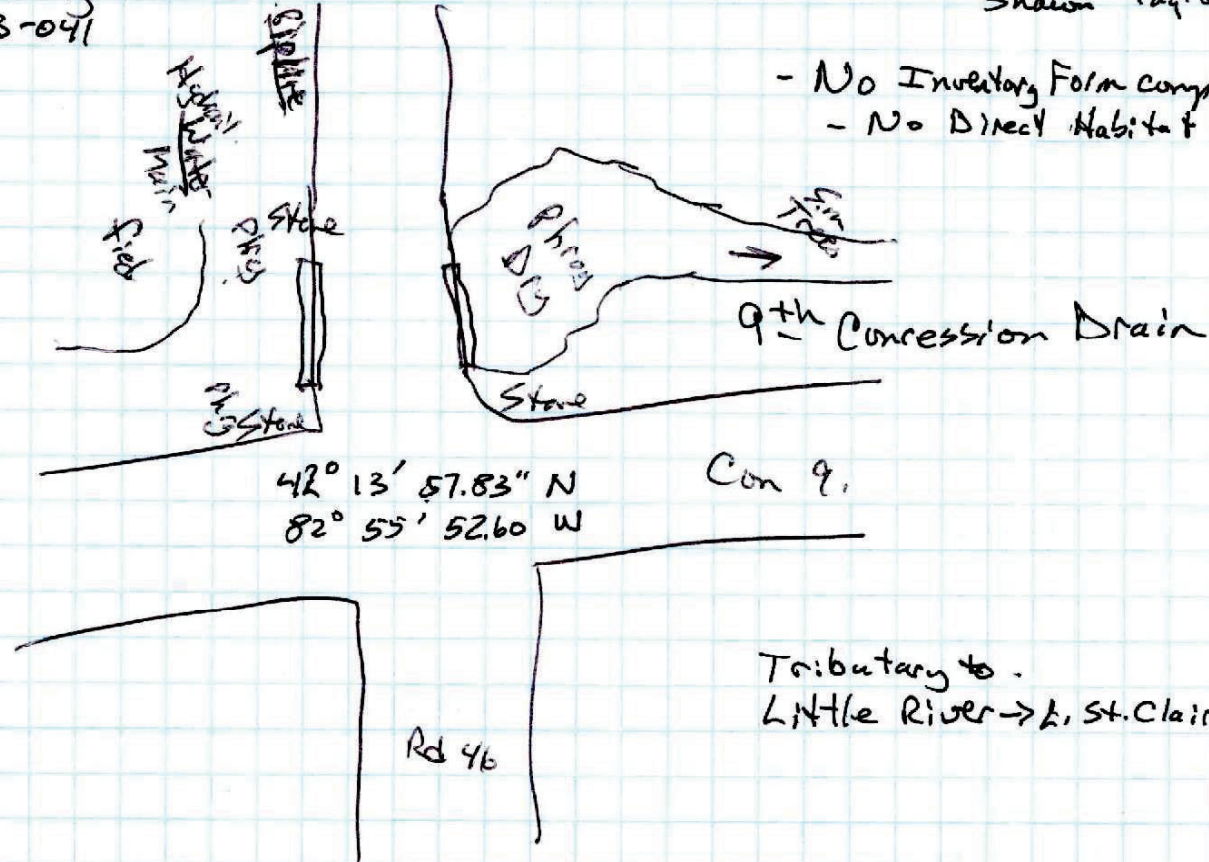 3-041
Shawn
- No Inventory Form
- No Direct Habitat
Hydrants
Water
Main
Field
Phrag
Stone
Phrag
Stone
Phrag
DG
Elm
Trees
9th Concession Drain
Stone
42° 13' 57.83" N
82° 55' 52.60 W
Con 9.
Tributary to.
Little River → L. St. Clair
Rd 46